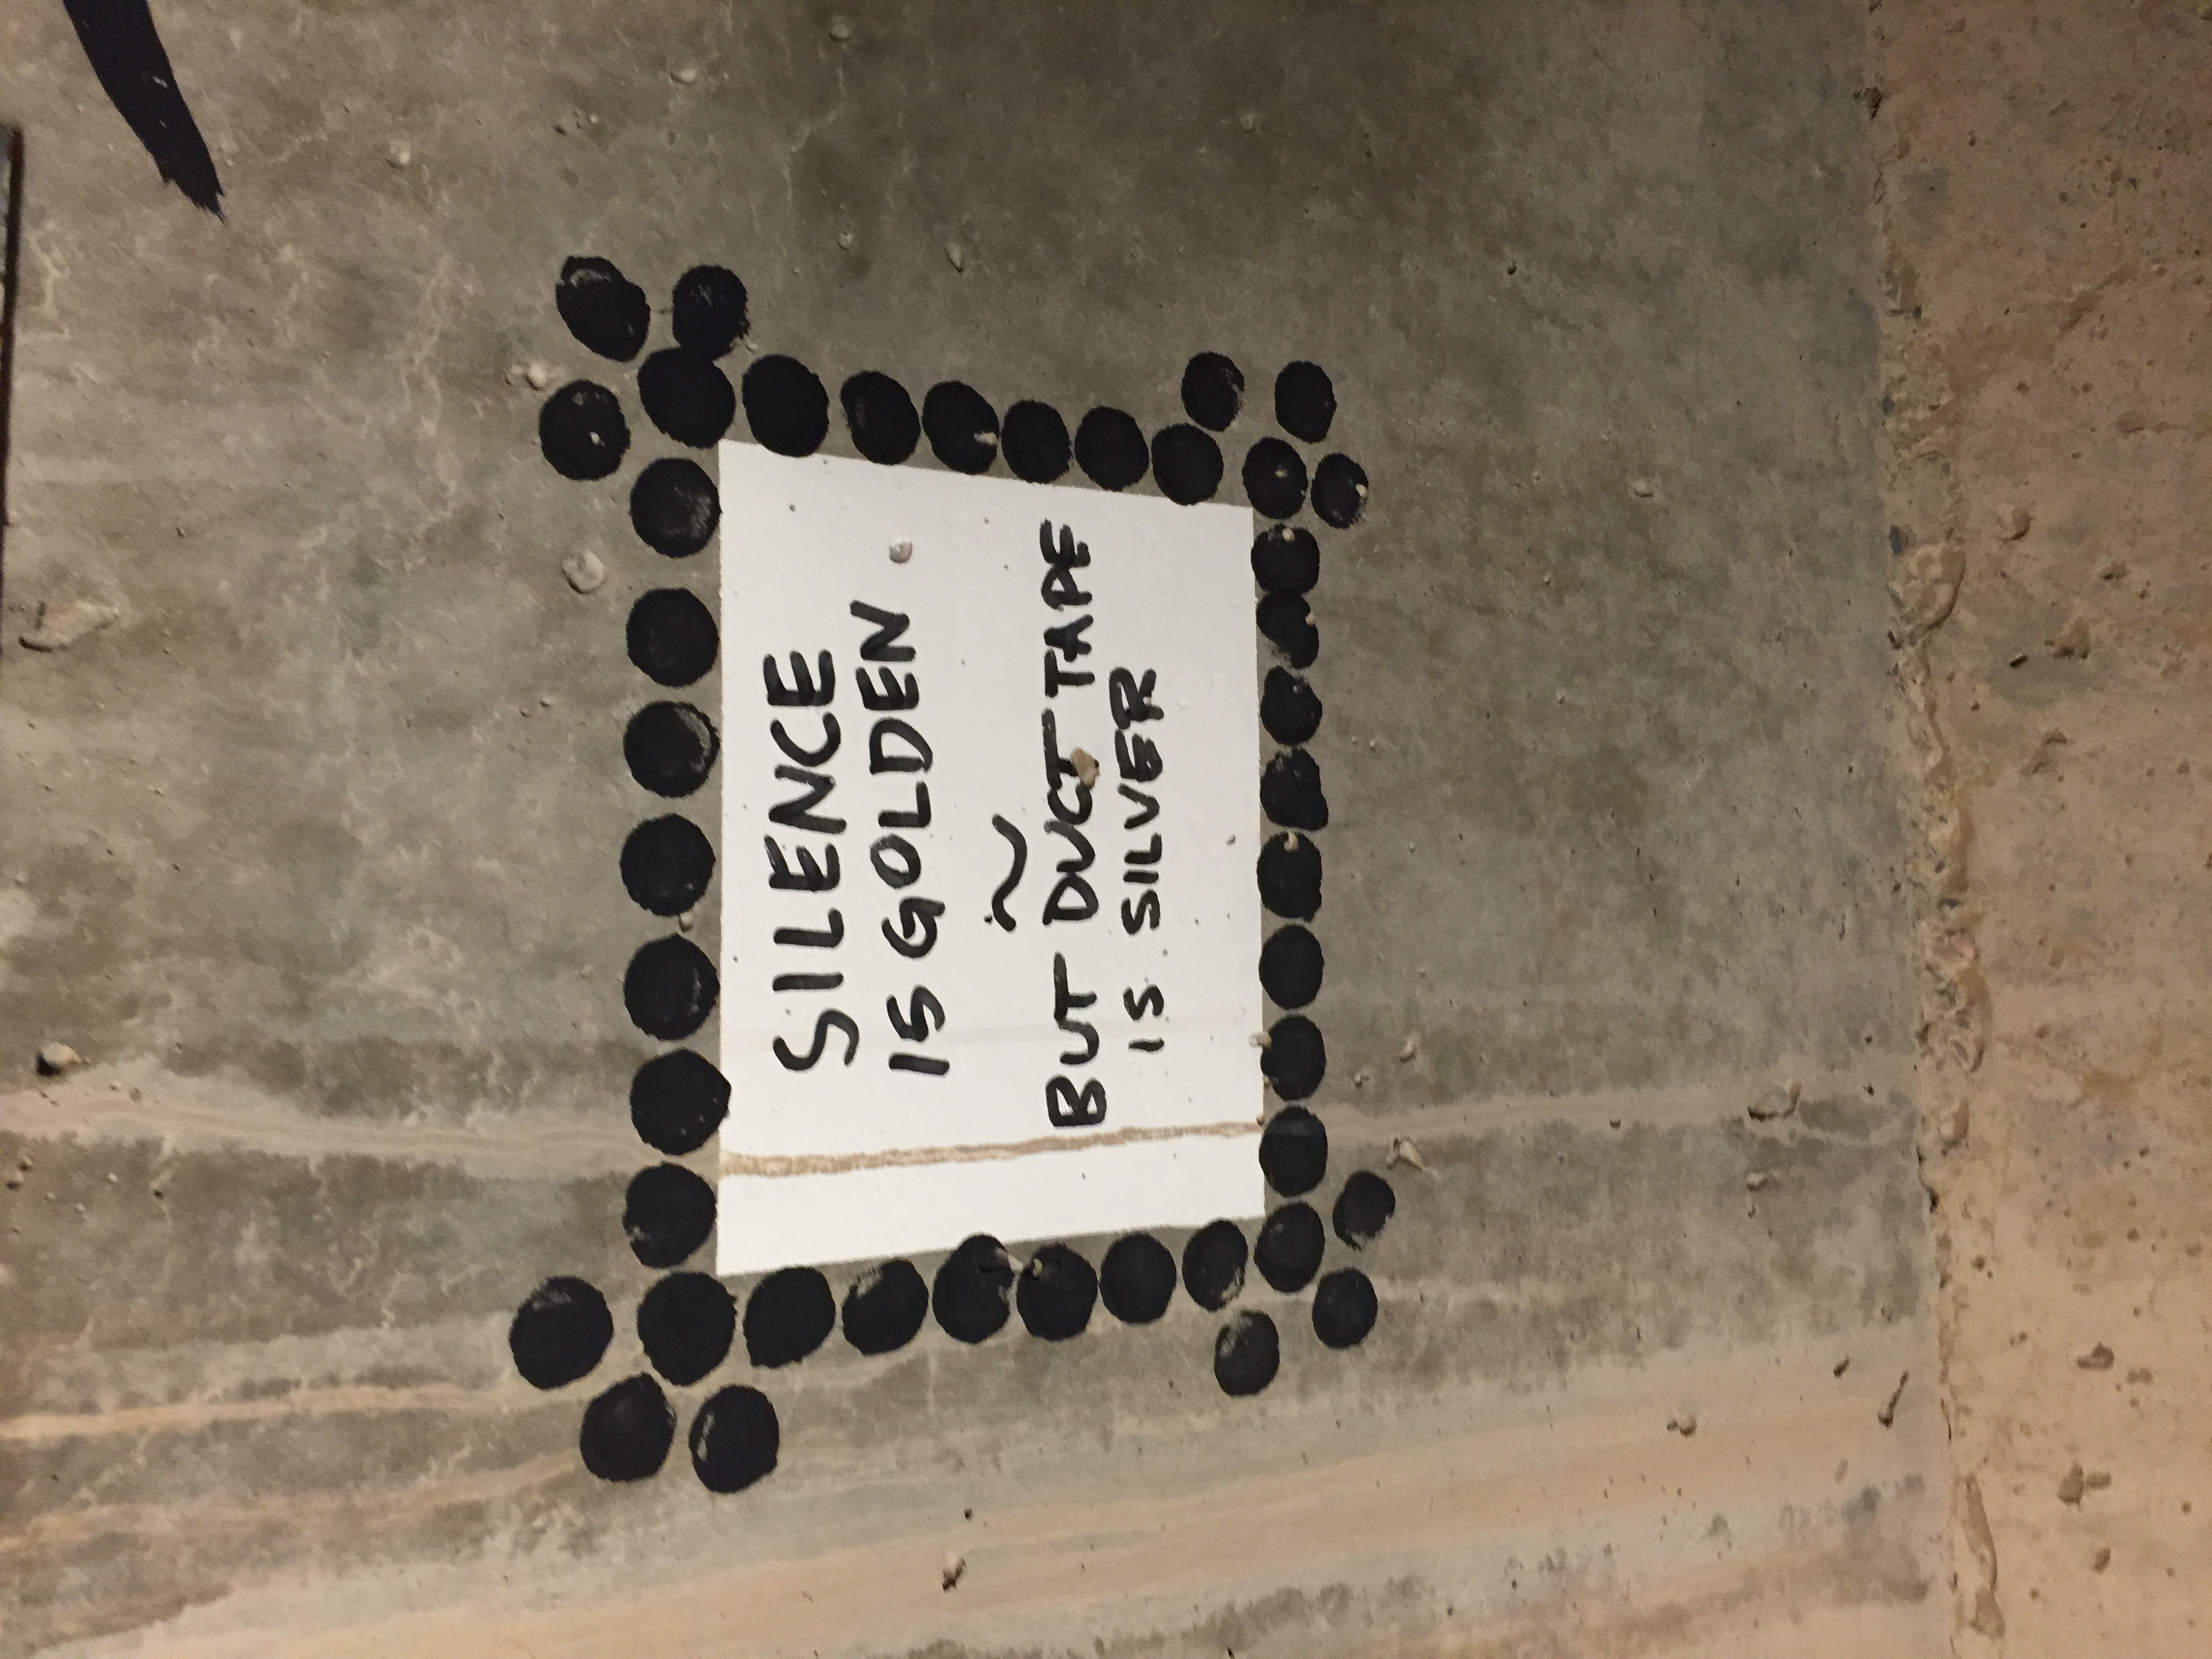 SILENCE
IS GOLDEN
~
BUT DUCT TAPE
IS SILVER